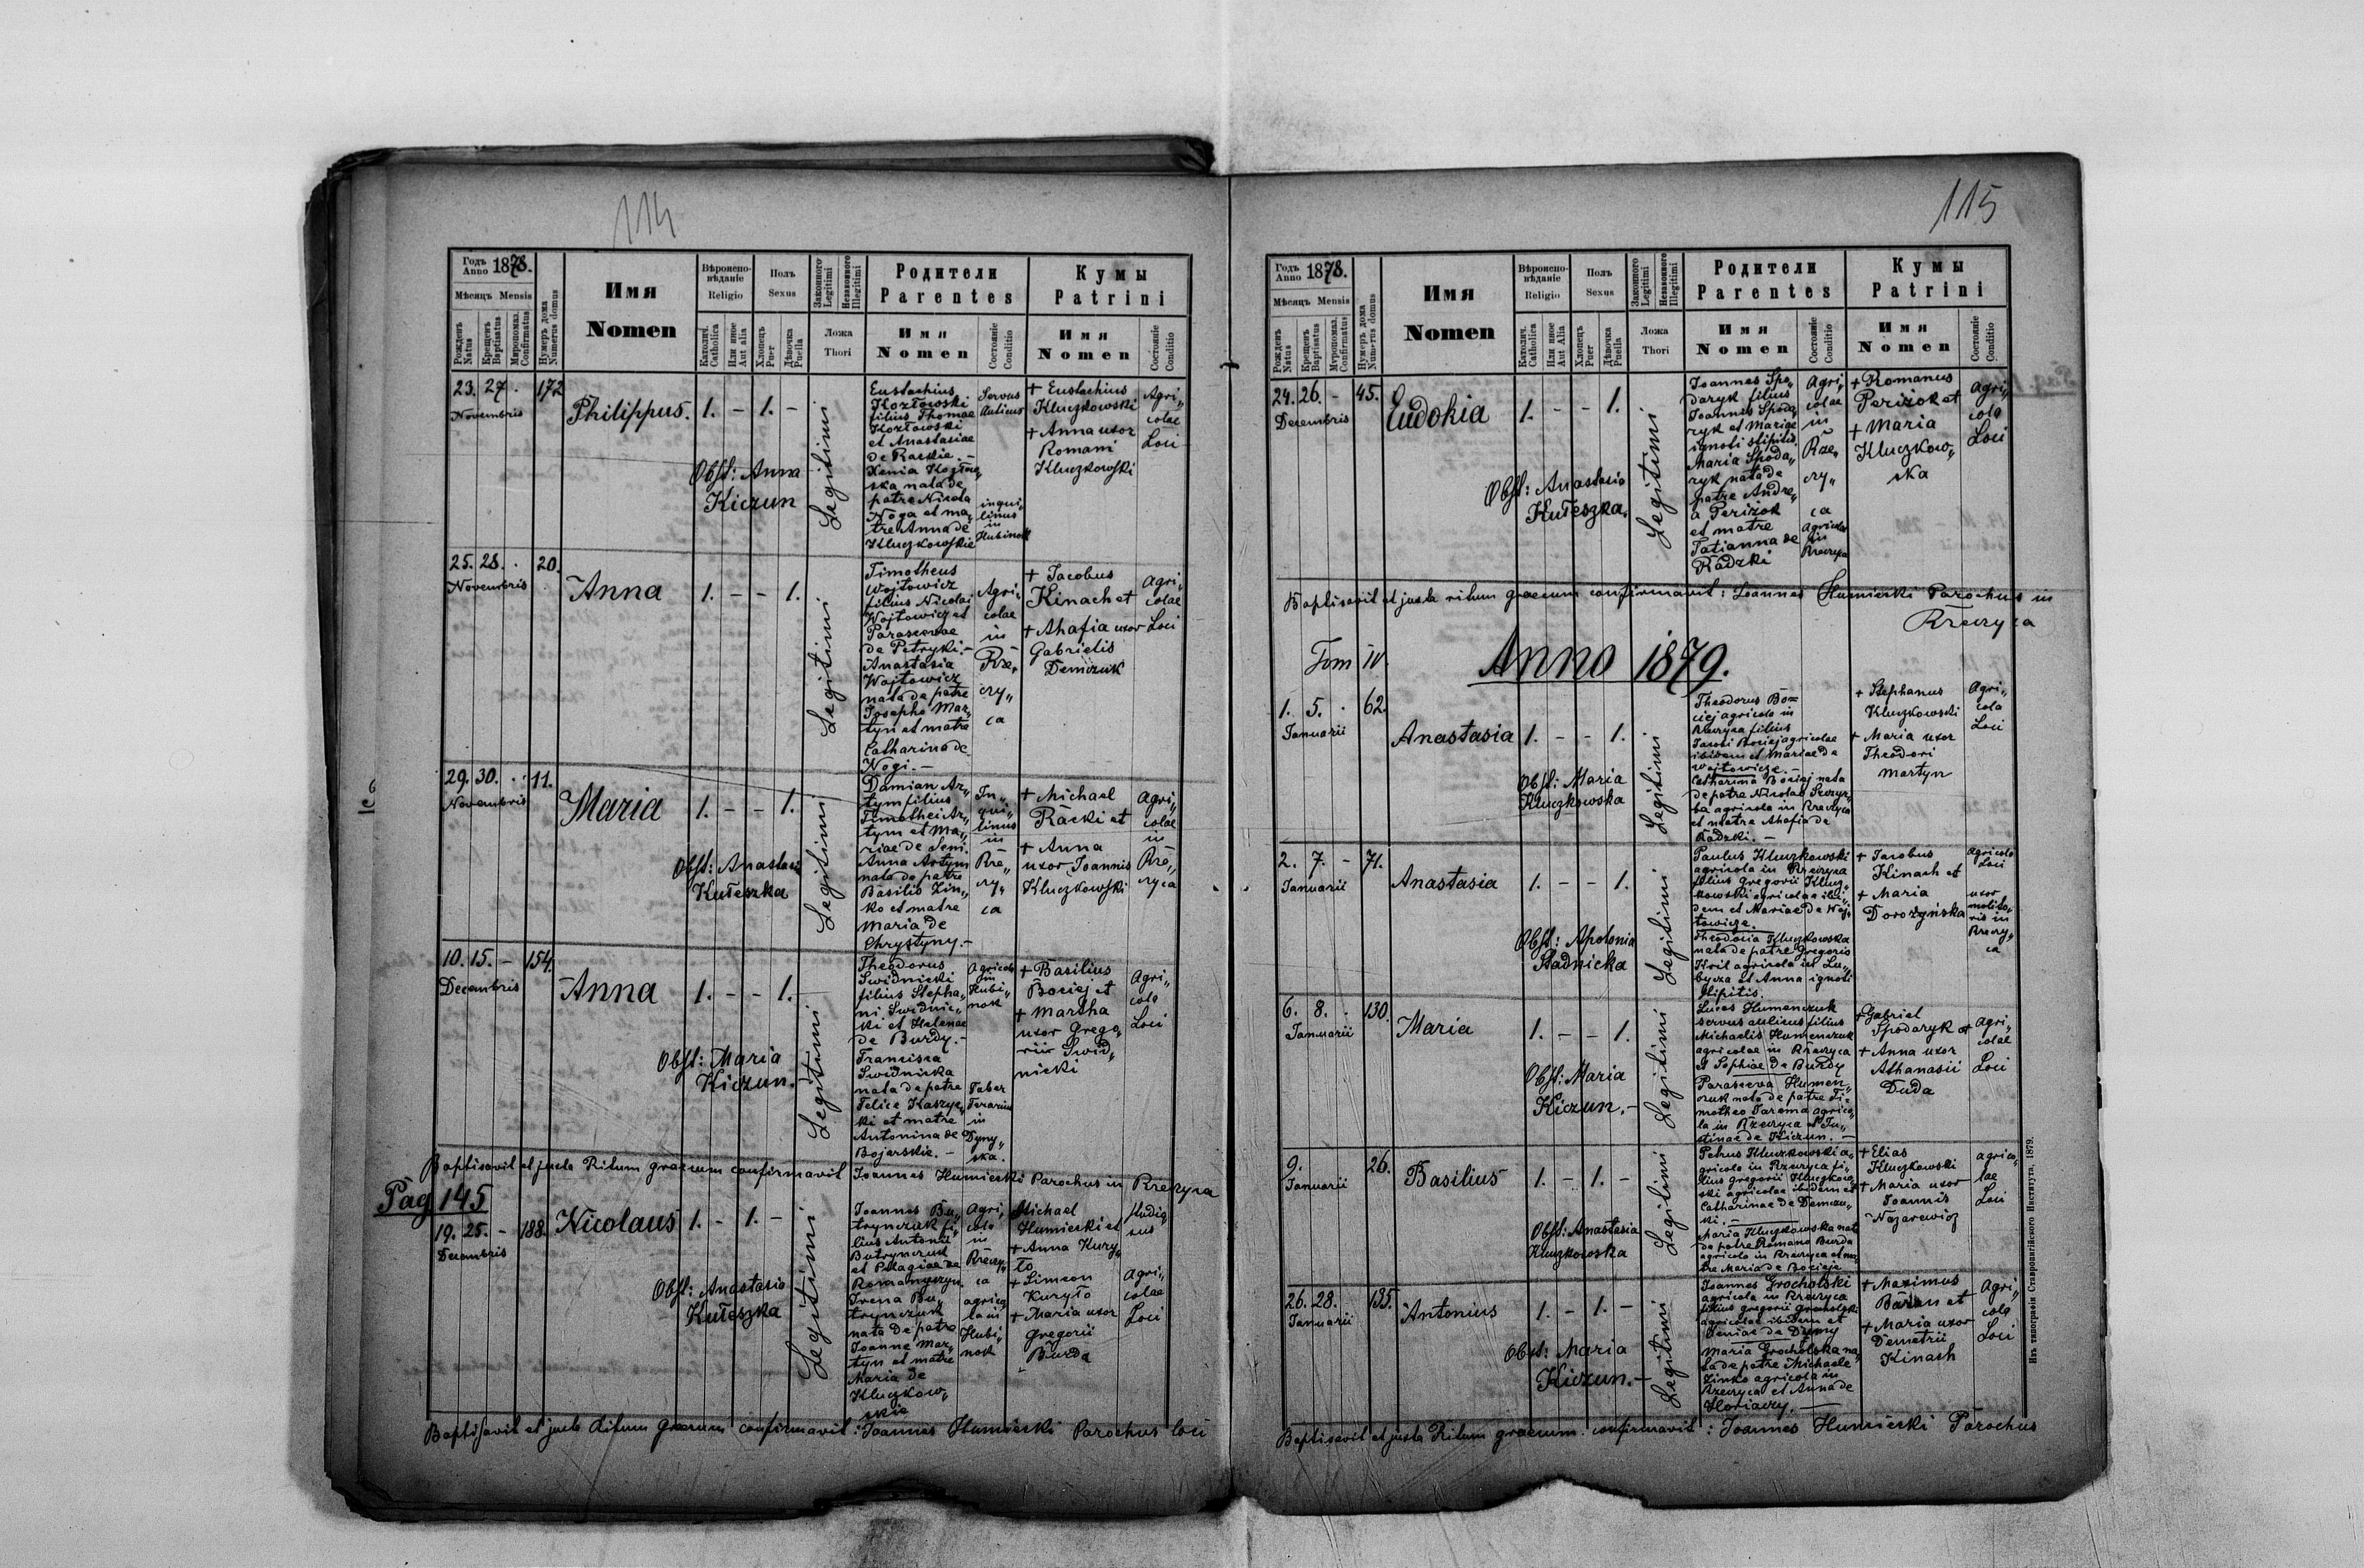 114
Годъ Anno 1878.
Мѣсяцъ Mensis
Рожденъ Natus
Крещенъ Baptisatus
Миропомаз. Confirmatus
Нумеръ дома Numerus domus
Имя
Nomen
Вѣроиспо-
вѣданіе
Religio
Католич. Catholica
Или иное Aut alia
Полъ
Sexus
Хлопецъ Puer
Дѣвочка Puella
Законного Legitimi
Незаконного Illegitimi
Ложа
Thori
Родители
Parentes
Имя
Nomen
Состояніе Conditio
Кумы
Patrini
Имя
Nomen
Состояніе Conditio
23. 27. . 172
Novembris
Philippus. 1. - 1. -
Obst: Anna
Kiczun
Legitimi
Eustachius
Kozłowski
filius Thomae
Kozłowski
et Anastasiae
de Rackie. -
Xenia Kozłow„
ska nata de
patre Nicola
Noga et ma„
tre Anna de
Kluczkowskie
Servus
Aulicus
inqui„
linus
in
Hubinok
+ Eustachius
Kluczkowski
+ Anna uxor
Romani
Kluczkowski
Agri„
colae
Loci
25. 28. . 20.
Novembris
Anna 1. - - 1.
Legitimi
Timotheus
Wojtowicz
filius Nicolai
Wojtowicz et
Parascevae
de Petryki. -
Anastasia
Wojtowicz
nata de patre
Josepho Mar„
tyn et matre
Catharina de
Nogi. -
Agri„
colae
in
Rze„
czy„
ca
+ Jacobus
Kinach et
+ Ahafia uxor
Gabrielis
Demczuk
Agri„
colae
Loci
29. 30. . 11.
Novembris
Maria 1. - - 1.
Obst: Anastasia
Kułeszka
Legitimi
Damian Ar„
tym filius
Timothei Ar„
tym et Ma„
riae de Seni.
Anna Artym
nata de patre
Basilio Zin„
ko et matre
Maria de
Chrystyny. -
In„
qui„
linus
in
Rze„
czy„
ca
+ Michael
Racki et
+ Anna
uxor Joannis
Kluczkowski
Agri„
colae
in
Rze„
czyca
10. 15. - 154.
Decembris
Anna 1. - - 1.
Obst: Maria
Kiczun.
Legitimi
Theodorus
Swidnicki
filius Stepha„
ni Swidnic„
ki et Helenae
de Burdy. -
Francisca
Swidnicka
nata de patre
Felice Kaszyc„
ki et matre
Antonina de
Bojarskie. -
Agricola
in
Hubi„
nok
Faber
Ferarius
in
Dyny„
ska.
+ Basilius
Bociej et
+ Martha
uxor Grego„
rii Swid„
nicki
Agri„
cola
Loci
Baptisavit et juxta Ritum graecum confirmavit Joannes Humiecki Parochus in Rzeczyca
Pag 145
19. 25. - 188.
Decembris
Nicolaus 1. - 1. -
Obst: Anastasia
Kułeszka
Legitimi
Joannes Bu„
trynczuk fi„
lius Antonii
Butrynczuk
et Pelagiae de
Romanyszyn
Irena Bu„
trynczuk
nata de patre
Joanne Mar„
tyn et matre
Maria de
Kluczkow„
skie
Agri„
cola
in
Rzeczy„
ca
agrico„
la in
Hubi„
nok
Michael
Humiecki et
+ Anna Kury„
ło
+ Simeon
Kuryło
+ Maria uxor
Gregorii
Burda
Agri„
colae
Loci
Baptisavit et juxta Ritum Graecum confirmavit: Joannes Humiecki Parochus loci
115
Годъ Anno 1878.
Мѣсяцъ Mensis
Рожденъ Natus
Крещенъ Baptisatus
Мѵропомаз. Confirmatus
Нумеръ дома Numerus domus
Имя
Nomen
Вѣроиспо-
вѣданіе
Religio
Католич. Catholica
Или иное Aut Alia
Полъ
Sexus
Хлопецъ Puer
Дѣвочка Puella
Законного Legitimi
Незаконного Illegitimi
Ложа
Thori
Родители
Parentes
Имя
Nomen
Состояніе Conditio
Кумы
Patrini
Имя
Nomen
Состояніе Conditio
24. 26. - 45.
Decembris
Eudokia 1. - - 1.
Obst: Anastasia
Kułeszka.
Legitimi
Joannes Spo„
daryk filius
Joannis Spoda„
ryk et Mariae
ignoti stipitis.
Maria Spoda„
ryk nata de
patre Andre„
a Perizok
et matre
Tatianna de
Radzki
Agri„
colae
in
Rze„
czy„
ca
Agricola
in
Rzeczyca
+ Romanus
Perizok et
+ Maria
Kluczkow„
ska
Agri„
cola
Loci
Baptisavit et juxta ritum graecum confirmavit: Joannes Humiecki Parochus in
Rzeczyca
Tom IV. Anno 1879.
1. 5. . 62.
Januarii
Anastasia 1. - - 1.
Obst: Maria
Kluczkowska
Legitimi
Theodorus Bo=
ciej agricola in
Rzeczyca filius
Jacobi Bociej agricolae
ibidem et Mariae de
Wojtowicze. -
Catharina Bociej nata
de patre Nicolao
agricola in Rzeczyca
et matre Ahafia de
Radzki. -
+ Stephanus
Kluczkowski
+ Maria uxor
Theodori
Martyn
Agri„
cola
Loci
2. 7. - 71.
Januarii
Anastasia 1. - - 1.
Obst: Apolonia
Stadnicka
Legitimi
Paulus Kluczkowski
agricola in Rzeczyca
filius Gregorii Klucz„
kowski agricolae ibi„
dem et Mariae de Woj„
towicze.
Theodosia Kluczkowska
nata de patre Gregorio
Kril agricola in Lu„
bycza et Anna ignoti
stipitis.
+ Jacobus
Kinach et
+ Maria
Dorożyńska
Agricola
Loci
uxor
molito„
ris in
Rzeczy„
ca
6. 8. . 130.
Januarii
Maria 1. - - 1.
Obst: Maria
Kiczun. -
Legitimi
Lucas Humenczuk
servus aulicus filius
Michaelis Humenczuk
agricolae in Rzeczyca
et Sophiae de Burdy
Parasceva Humen„
czuk nata de patre Ti„
motheo Jarema agrico„
la in Rzeczyca et Ju„
stinae de Kiczun. -
+ Gabriel
Spodaryk et
+ Anna uxor
Athanasii
Duda
Agri„
colae
Loci
9. 26.
Januarii
Basilius 1. - 1. -
Obst: Anastasia
Kluczkowska
Legitimi
Petrus Kluczkowski a„
gricola in Rzeczyca fi„
lius Gregorii Kluczkow„
ski agricolae ibidem et
Catharinae de Demczu„
ki. -
Maria Kluczkowska nata
de patre Romano Burda
agricola in Rzeczyca et ma„
tre Maria de Bocieje
+ Elias
Kluczkowski
+ Maria uxor
Joannis
Nazarewicz
agrico„
lae
Loci
26. 28. 135.
Januarii
Antonius 1. - 1. -
Obst: Maria
Kiczun. -
Legitimi
Joannes Grocholski
agricola in Rzeczyca
filius Gregorii Grocholski
agricolae ibidem et
Xeniae de Dumy
Maria Grocholska na„
ta de patre Michaele
Zinko agricola in
Rzeczyca et Anna de
+ Maximus
Baran et
+ Maria uxor
Demetrii
Kinach
Agri„
cola
Loci
Baptisavit et juxta Ritum graecum confirmavit: Joannes Humiecki Parochus
Изъ типографіи Ставропигійского Института, 1879.